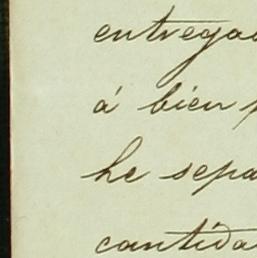 entregad
á bien p
he sepa
cantida